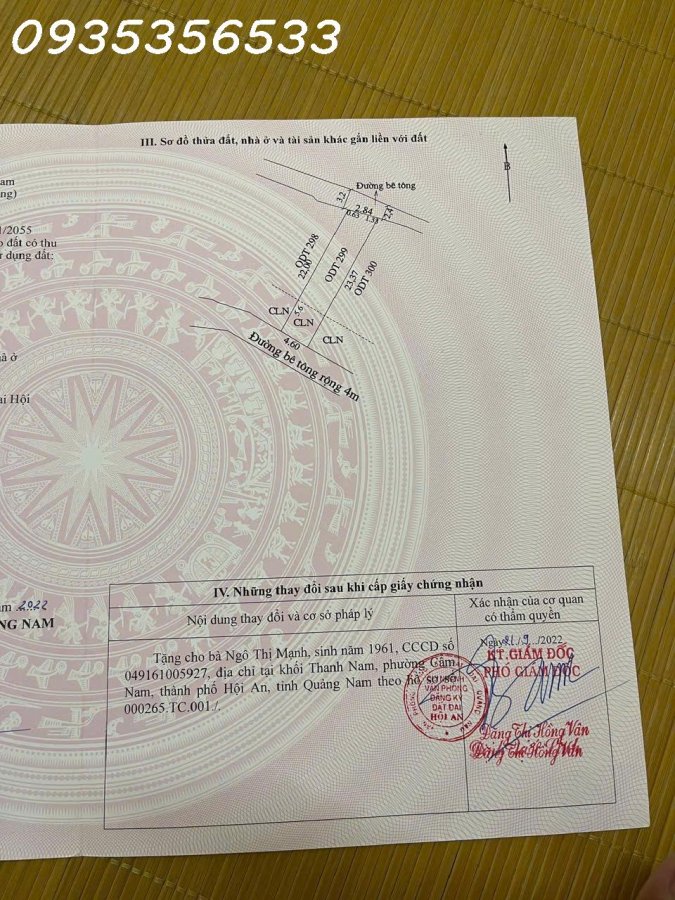 0935356533
III. Sơ đồ thửa đất, nhà ở và tài sản khác gắn liền với đất
am
ng)
B
Đường bê tông
3.2
2.84
0.63
1.38
2.4
/2055
o đất có thu
ử dụng đất:
ODT 298
22.00
ODT 299
23.37
ODT 300
CLN
5.6
CLN
CLN
4.60
Đường bê tông rộng 4m
à ở
ại Hội
ăm 2022
NG NAM
IV. Những thay đổi sau khi cấp giấy chứng nhận
Nội dung thay đổi và cơ sở pháp lý
Xác nhận của cơ quan
có thẩm quyền
Tặng cho bà Ngô Thị Mạnh, sinh năm 1961, CCCD số
049161005927, địa chỉ tại khối Thanh Nam, phường Cẩm
Nam, thành phố Hội An, tỉnh Quảng Nam theo hồ sơ số
000265.TC.001./.
Ngày 21/9/2022
KT.GIÁM ĐỐC
PHÓ GIÁM ĐỐC
CHI NHÁNH
VĂN PHÒNG
ĐĂNG KÝ
ĐẤT ĐAI
HỘI AN
Đặng Thị Hồng Vân
Đặng Thị Hồng Vân